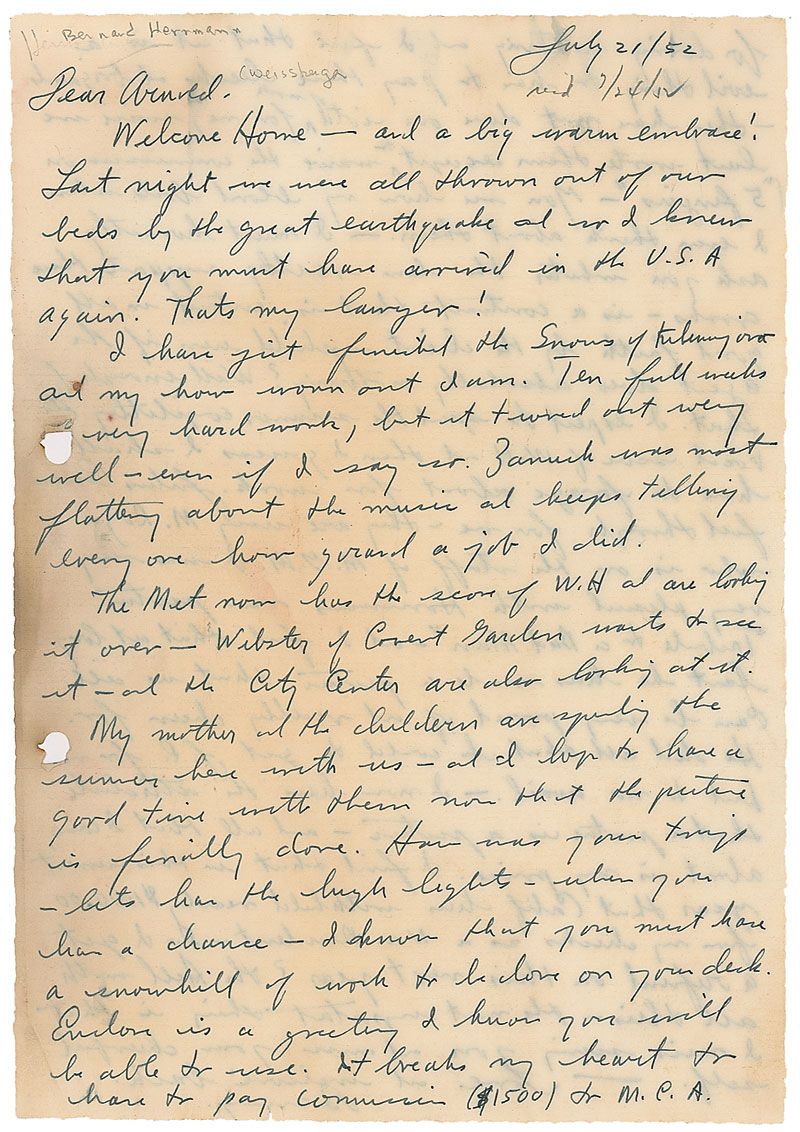 Bernard Herrmann
July 21/52
(Weissberger
rec'd 7/24/52
Dear Arnold.
Welcome Home — and a big warm embrace!
Last night we were all thrown out of our
beds by the great earthquake ad so I knew
that you must have arrived in the U.S.A
again. Thats my lawyer!
I have just finished the Snows of Kilimanjaro
ad my how worn out I am. Ten full weeks
very hard work, but it turned out very
well – even if I say so. Zanuck was most
flattering about the music ad keeps telling
every one how grand a job I did.
The Met now has the score of W.H ad are looking
it over — Webster of Covent Garden wants to see
it – ad the City Center are also looking at it.
My mother ad the childern are spending the
summer here with us – ad I hope to have a
good time with them now that the picture
is finally done. How was your trip
– lets have the high lights – when you
have a chance – I know that you must have
a snowhill of work to be done on your desk.
Enclose is a greeting I know you will
be able to use. It breaks my heart to
have to pay commission ($1500) to M.C.A.